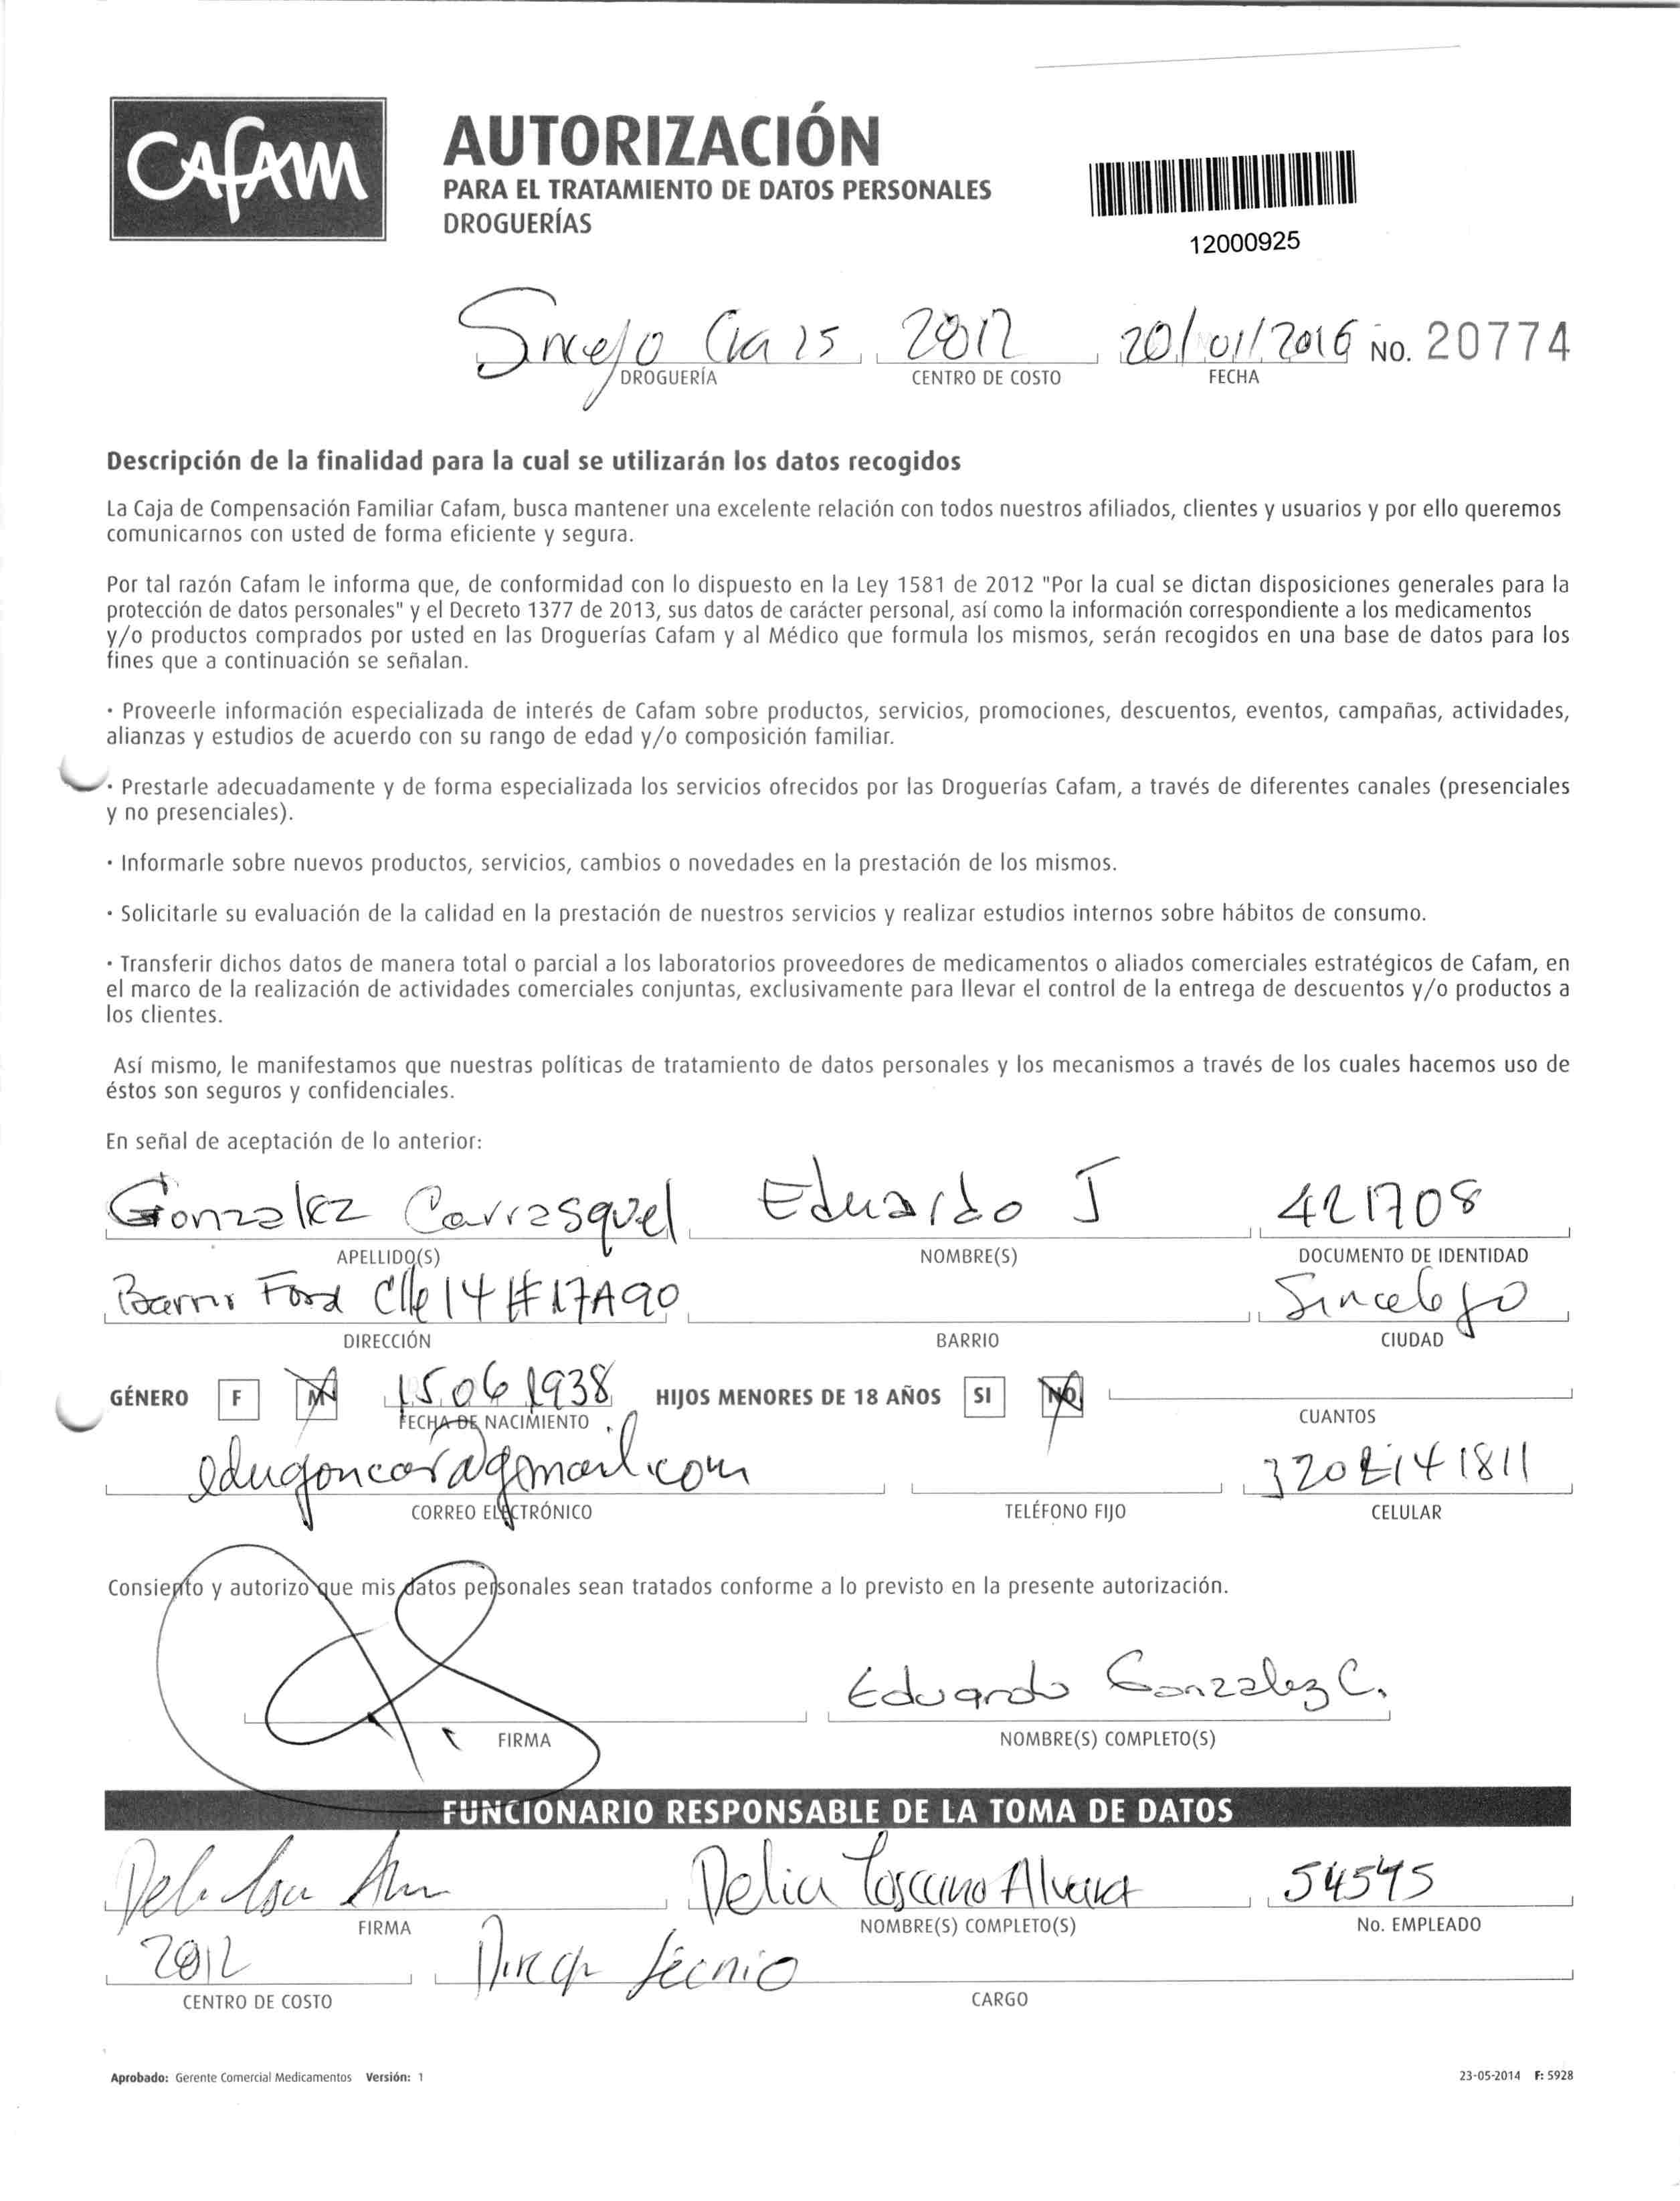 CAFAM
AUTORIZACIÓN
PARA EL TRATAMIENTO DE DATOS PERSONALES
DROGUERÍAS
12000925
Sincejo Cra 25 2012 20/01/2016 No. 20774
DROGUERÍA CENTRO DE COSTO FECHA
Descripción de la finalidad para la cual se utilizarán los datos recogidos
La Caja de Compensación Familiar Cafam, busca mantener una excelente relación con todos nuestros afiliados, clientes y usuarios y por ello queremos
comunicarnos con usted de forma eficiente y segura.
Por tal razón Cafam le informa que, de conformidad con lo dispuesto en la Ley 1581 de 2012 "Por la cual se dictan disposiciones generales para la
protección de datos personales" y el Decreto 1377 de 2013, sus datos de carácter personal, así como la información correspondiente a los medicamentos
y/o productos comprados por usted en las Droguerías Cafam y al Médico que formula los mismos, serán recogidos en una base de datos para los
fines que a continuación se señalan.
· Proveerle información especializada de interés de Cafam sobre productos, servicios, promociones, descuentos, eventos, campañas, actividades,
alianzas y estudios de acuerdo con su rango de edad y/o composición familiar.
· Prestarle adecuadamente y de forma especializada los servicios ofrecidos por las Droguerías Cafam, a través de diferentes canales (presenciales
y no presenciales).
· Informarle sobre nuevos productos, servicios, cambios o novedades en la prestación de los mismos.
· Solicitarle su evaluación de la calidad en la prestación de nuestros servicios y realizar estudios internos sobre hábitos de consumo.
· Transferir dichos datos de manera total o parcial a los laboratorios proveedores de medicamentos o aliados comerciales estratégicos de Cafam, en
el marco de la realización de actividades comerciales conjuntas, exclusivamente para llevar el control de la entrega de descuentos y/o productos a
los clientes.
Así mismo, le manifestamos que nuestras políticas de tratamiento de datos personales y los mecanismos a través de los cuales hacemos uso de
éstos son seguros y confidenciales.
En señal de aceptación de lo anterior:
Gonzalez Carrasquel Eduardo J 421708
APELLIDO(S) NOMBRE(S) DOCUMENTO DE IDENTIDAD
Barrio Ford Clle 14 # 17A90 Sincelejo
DIRECCIÓN BARRIO CIUDAD
GÉNERO F M 15 06 1938 HIJOS MENORES DE 18 AÑOS SI NO
FECHA DE NACIMIENTO CUANTOS
edugoncar@gmail.com
CORREO ELECTRÓNICO TELÉFONO FIJO CELULAR
Consiento y autorizo que mis datos personales sean tratados conforme a lo previsto en la presente autorización.
Eduardo Gonzalez C.
FIRMA NOMBRE(S) COMPLETO(S)
FUNCIONARIO RESPONSABLE DE LA TOMA DE DATOS
Delia Toscano Alvarez 54545
FIRMA NOMBRE(S) COMPLETO(S) No. EMPLEADO
2012 Direc técnico
CENTRO DE COSTO CARGO
Aprobado: Gerente Comercial Medicamentos Versión: 1 23-05-2014 F: 5928